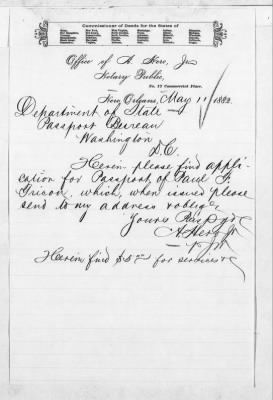 Commissioner of Deeds for the States of
Office of A. Hero, Jr.
Notary Public,
No. 17 Commercial Place.
New Orleans, May 11 1882.
Department of State
Passport Bureau
Washington
D.C.
Herein please find appli-
cation for Passport of Paul F.
which, when issued please
send to my address & oblige,
Yours Resp
A. Hero Jr
N. P.
Herein find $5 for services &c